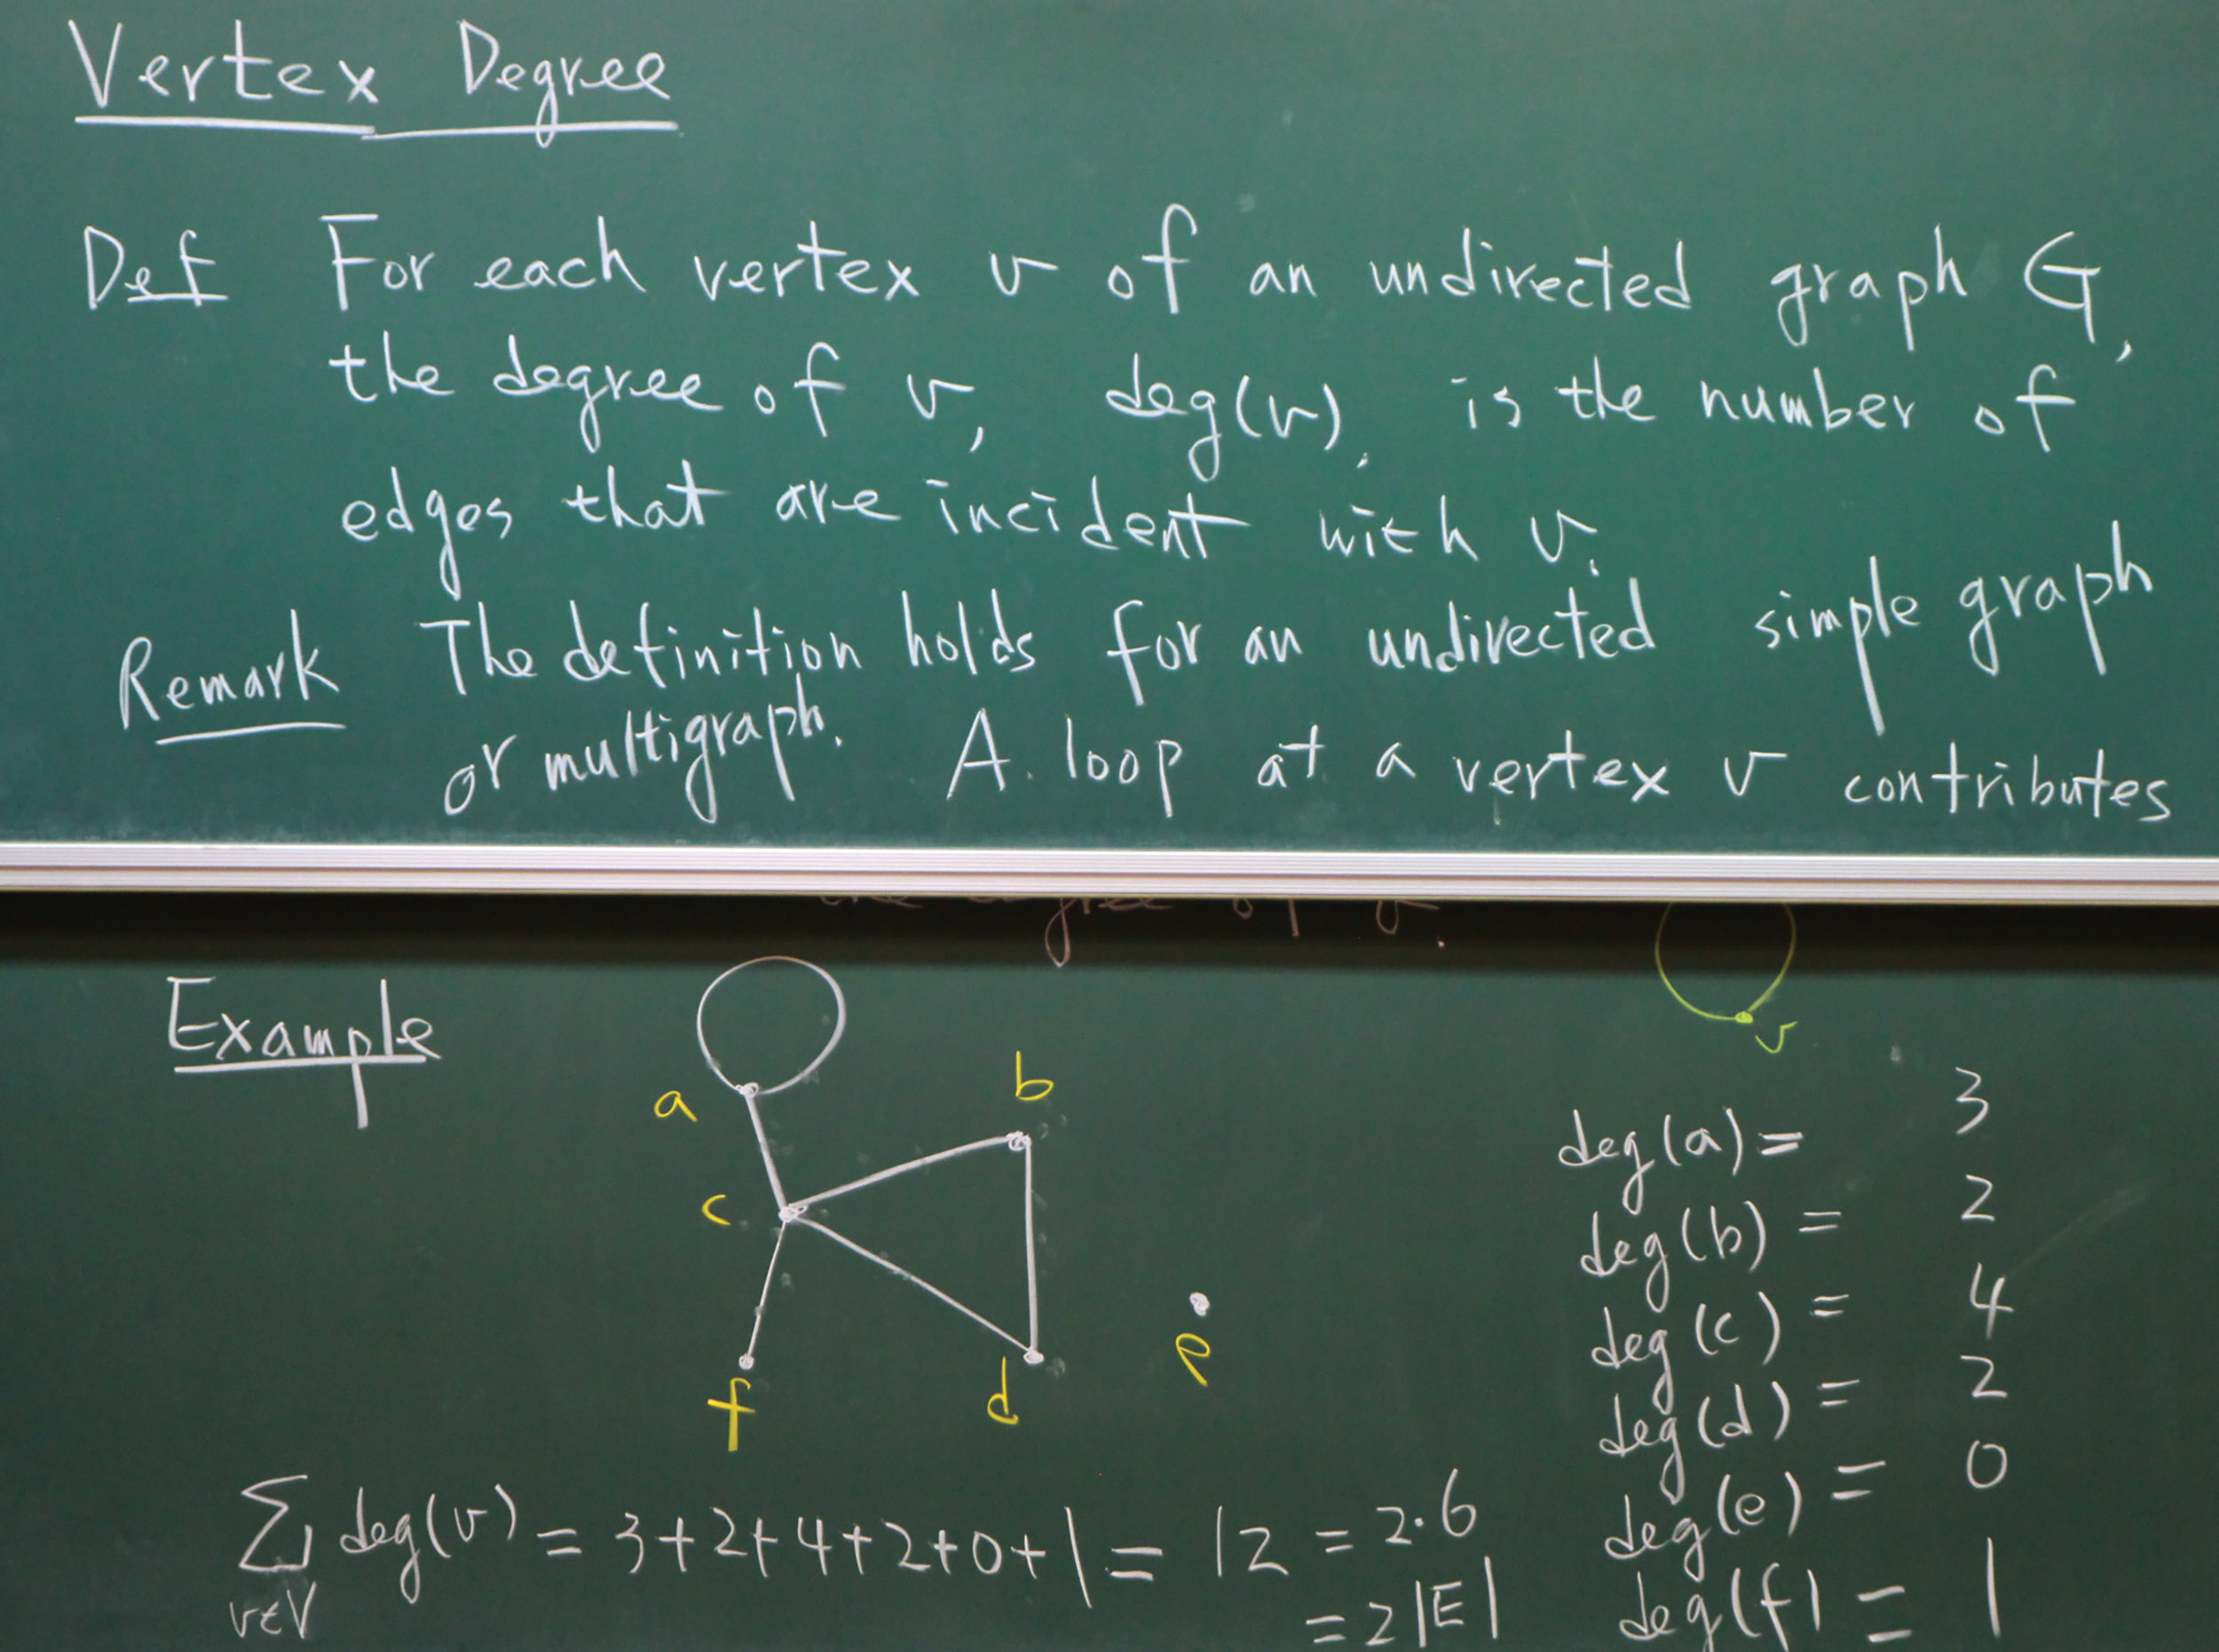 Vertex Degree
Def For each vertex v of an undirected graph G,
the degree of v, deg(v), is the number of
edges that are incident with v.
Remark The definition holds for an undirected simple graph
or multigraph. A loop at a vertex v contributes
degree of v.
v
Example
a
b
c
d
e
f
deg(a) = 3
deg(b) = 2
deg(c) = 4
deg(d) = 2
deg(e) = 0
deg(f) = 1
∑ deg(v) = 3+2+4+2+0+1 = 12 = 2·6
v∈V
= 2|E|